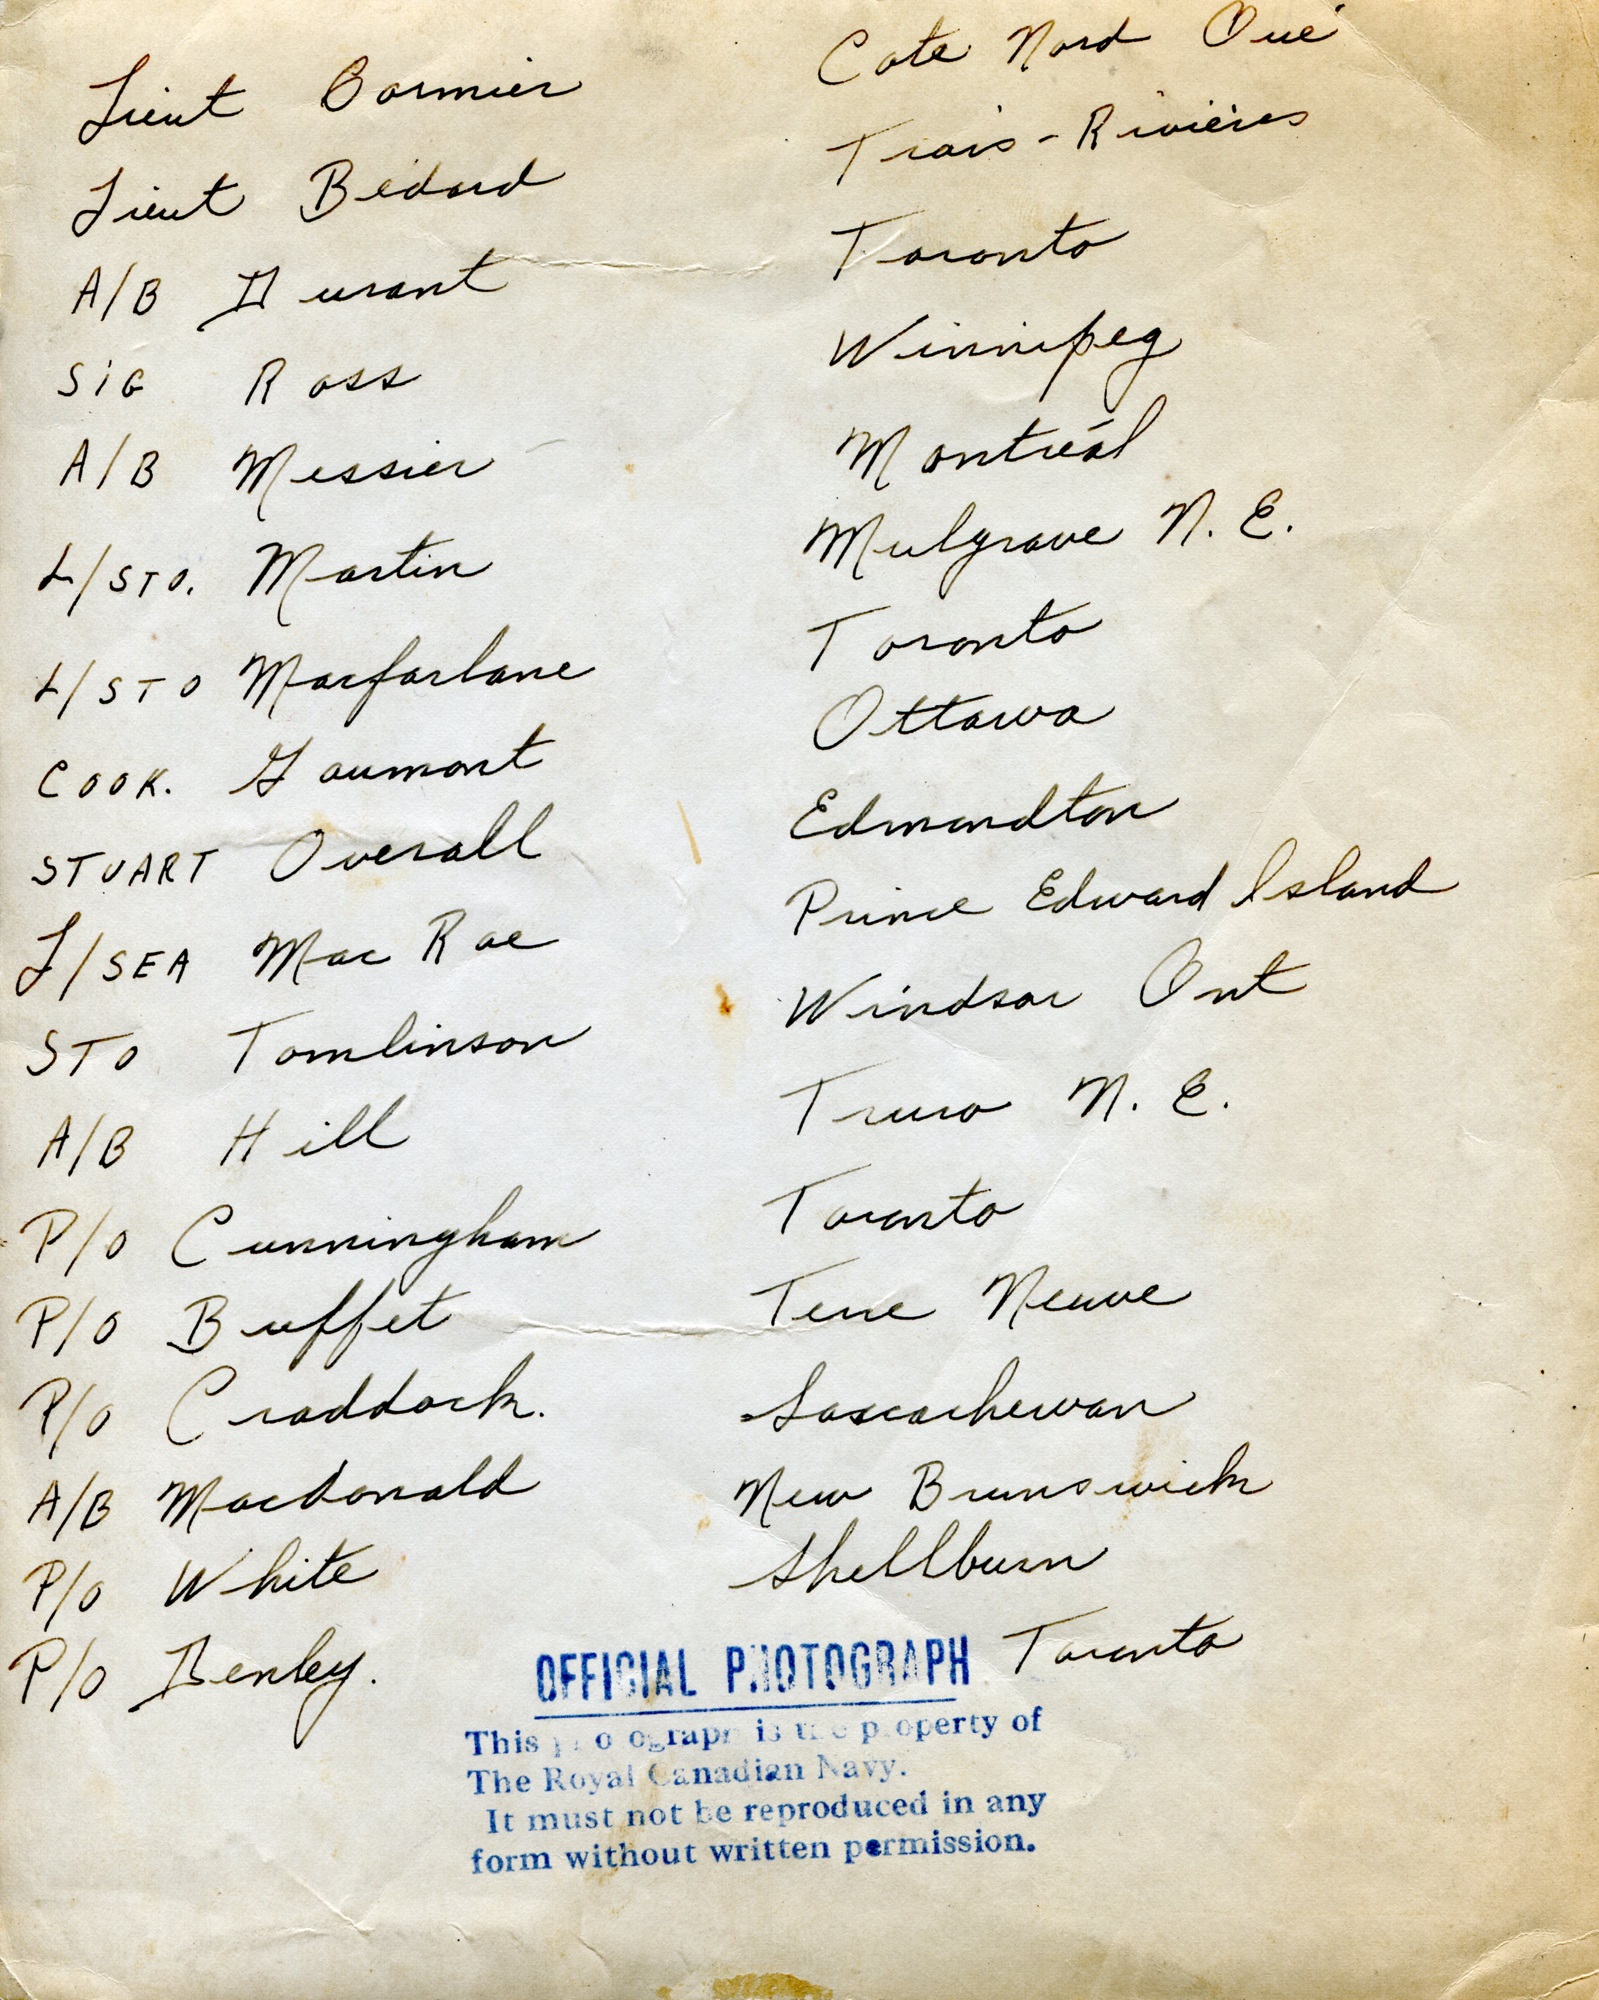 Lieut Cormier Cote Nord Que
Lieut Bédard Trois-Rivières
A/B Durant Toronto
SIG Ross Winnipeg
A/B Messier Montréal
L/STO. Martin Mulgrave N. E.
L/STO Macfarlane Toronto
COOK. Gaumont Ottawa
STUART Overall Edmundton
L/SEA Mac Rae Prince Edward Island
STO Tomlinson Windsor Ont
A/B Hill Truro N. E.
P/O Cunningham Toronto
P/O Buffet Terre Neuve
P/O Craddock. Sascachewan
A/B Macdonald New Brunswick
P/O White Shellburn
P/O Benley. Toronto
OFFICIAL PHOTOGRAPH
This photograph is the property of
The Royal Canadian Navy.
It must not be reproduced in any
form without written permission.